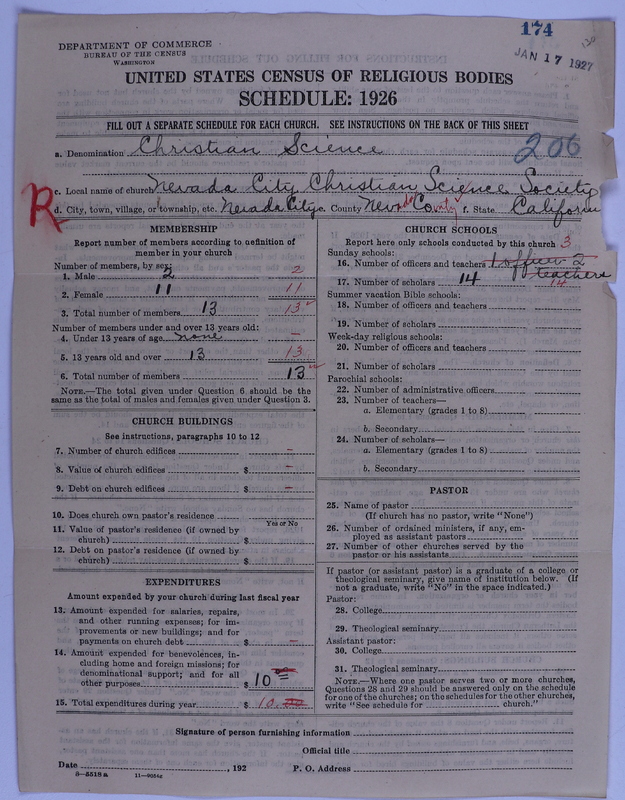 174
130
JAN 17 1927
DEPARTMENT OF COMMERCE
BUREAU OF THE CENSUS
WASHINGTON
UNITED STATES CENSUS OF RELIGIOUS BODIES
SCHEDULE: 1926
FILL OUT A SEPARATE SCHEDULE FOR EACH CHURCH. SEE INSTRUCTIONS ON THE BACK OF THIS SHEET
a. Denomination Christian Science 206
c. Local name of church Nevada City Christian Science Society
R
d. City, town, village, or township, etc. Nevada City e. County Nevada County f. State California
MEMBERSHIP
Report number of members according to definition of
member in your church
Number of members, by sex:
1. Male 2 2
2. Female 11 11
3. Total number of members 13 13
Number of members under and over 13 years old:
4. Under 13 years of age none –
5. 13 years old and over 13 13
6. Total number of members 13
NOTE.—The total given under Question 6 should be the
same as the total of males and females given under Question 3.
CHURCH BUILDINGS
See instructions, paragraphs 10 to 12
7. Number of church edifices –
8. Value of church edifices $ –
9. Debt on church edifices $ –
10. Does church own pastor's residence
Yes or No
11. Value of pastor's residence (if owned by
church) $
12. Debt on pastor's residence (if owned by
church) $
EXPENDITURES
Amount expended by your church during last fiscal year
13. Amount expended for salaries, repairs,
and other running expenses; for im-
provements or new buildings; and for
payments on church debt $ –
14. Amount expended for benevolences, in-
cluding home and foreign missions; for
denominational support; and for all
other purposes $ 10
15. Total expenditures during year $ 10.
CHURCH SCHOOLS
Report here only schools conducted by this church 3
Sunday schools:
16. Number of officers and teachers 1 officer 2
teachers
17. Number of scholars 14 14
Summer vacation Bible schools:
18. Number of officers and teachers
19. Number of scholars
Week-day religious schools:
20. Number of officers and teachers
21. Number of scholars
Parochial schools:
22. Number of administrative officers
23. Number of teachers—
a. Elementary (grades 1 to 8)
b. Secondary
24. Number of scholars—
a. Elementary (grades 1 to 8)
b. Secondary
PASTOR
25. Name of pastor
(If church has no pastor, write "None")
26. Number of ordained ministers, if any, em-
ployed as assistant pastors
27. Number of other churches served by the
pastor or his assistants
If pastor (or assistant pastor) is a graduate of a college or
theological seminary, give name of institution below. (If
not a graduate, write "No" in the space indicated.)
Pastor:
28. College
29. Theological seminary
Assistant pastor:
30. College
31. Theological seminary
NOTE.—Where one pastor serves two or more churches,
Questions 28 and 29 should be answered only on the schedule
for one of the churches; on the schedules for the other churches,
write "See schedule for church."
Signature of person furnishing information
Official title
Date , 192 P. O. Address
8-5518a 11-9954c